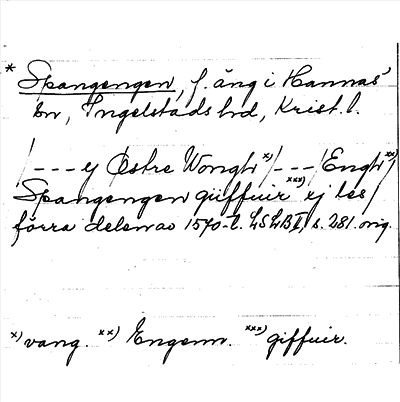 * Spangengen, f. äng i Hannas'
sn, Ingelstads hd, Krist. l.
/--- ej Østre Wongh x) /---/Engh xx)/
Spangengen güffuir xxx) ej les/
förra delen av 1570-t. LSLB I, s. 281. orig.
x) vang. xx) Engenn. xxx) giffuir.